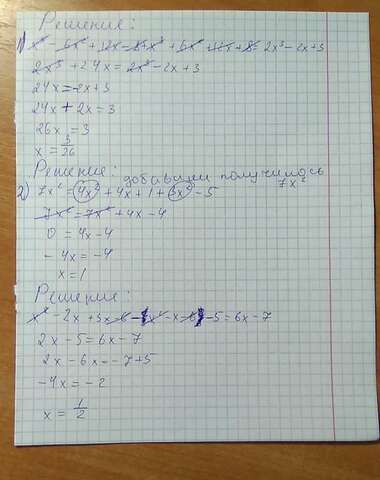 Решение:
1) x³ - 6x² + 12x - 8 + x³ + 6x² + 12x + 8 = 2x³ - 2x + 3
2x³ + 24x = 2x³ - 2x + 3
24x = -2x + 3
24x + 2x = 3
26x = 3
x = 3/26
Решение: добавили получилось 7x²
2) 7x² = 4x² + 4x + 1 + 3x² - 5
7x² = 7x² + 4x - 4
0 = 4x - 4
- 4x = -4
x = 1
Решение:
x² - 2x + 3x - 6 - (x² - x - 6) - 5 = 6x - 7
2x - 5 = 6x - 7
2x - 6x = -7 + 5
-4x = -2
x = 1/2